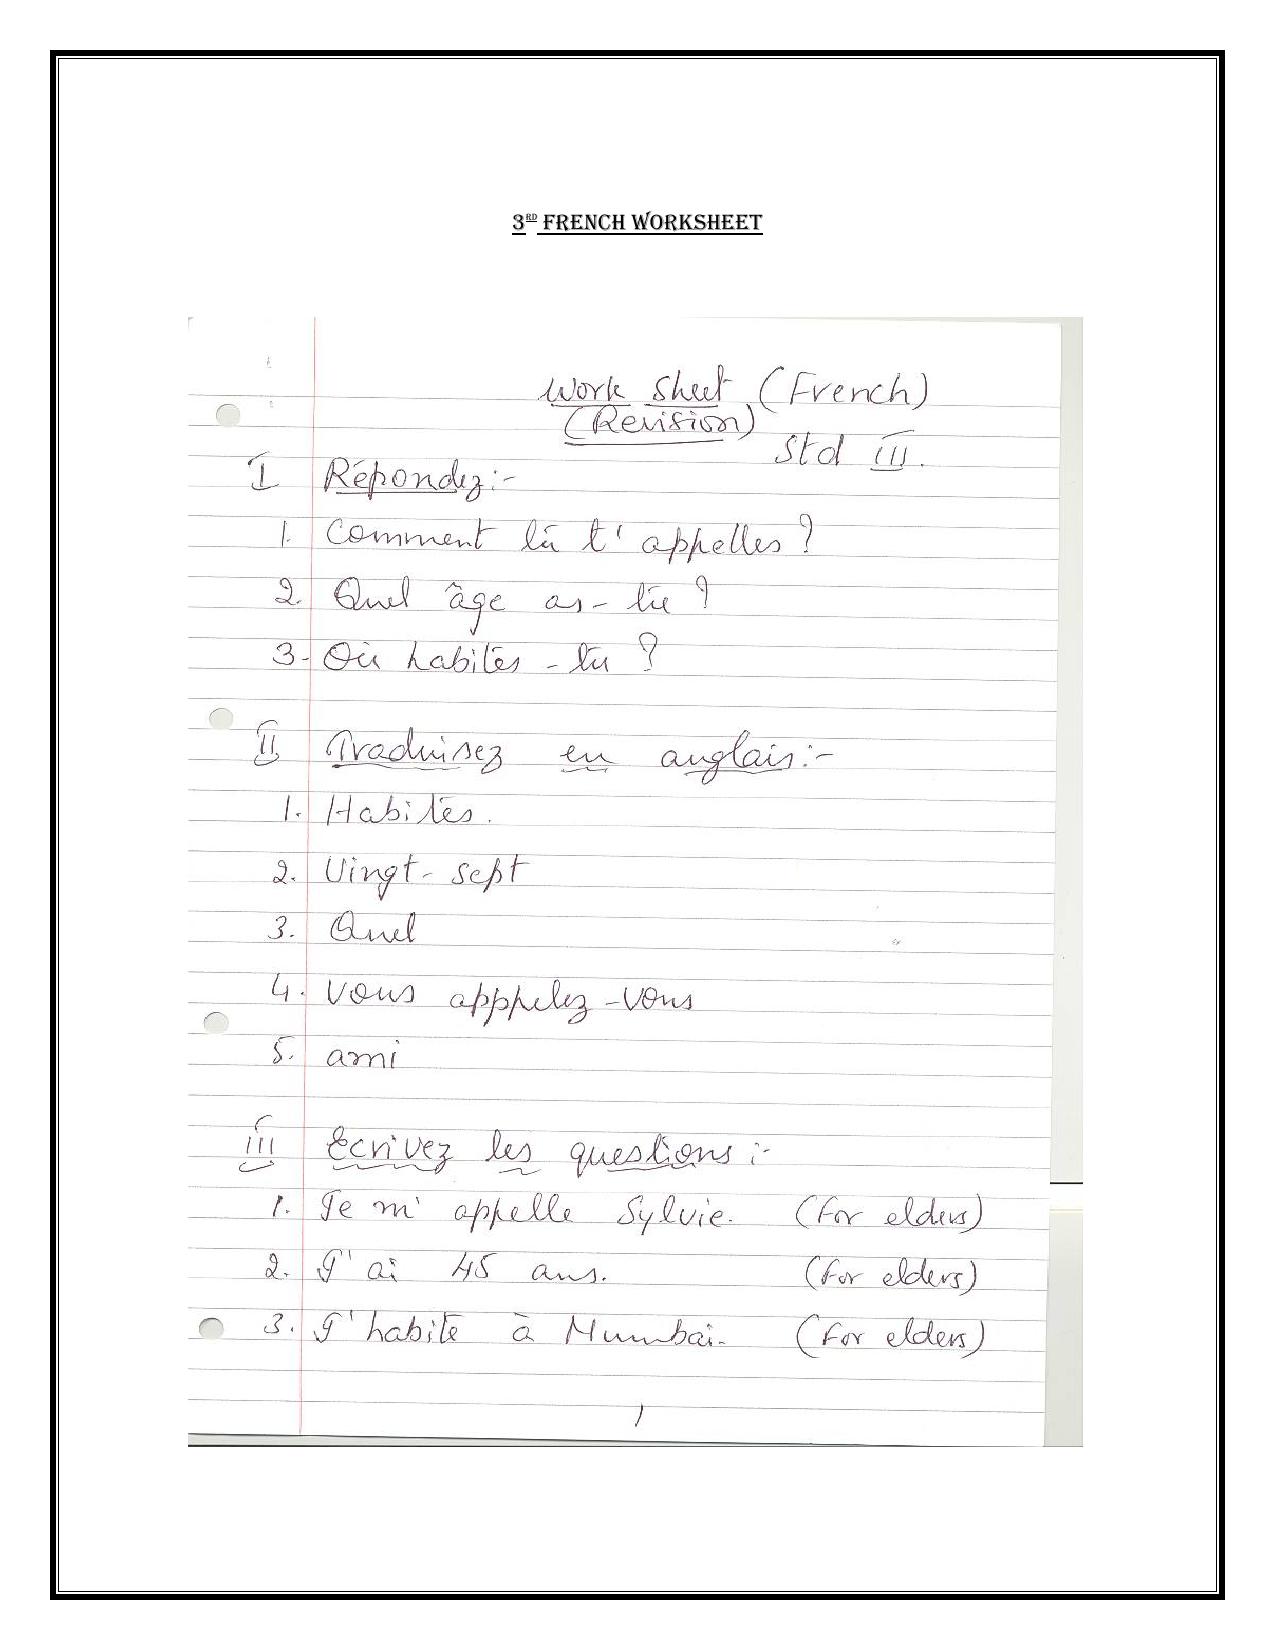 3RD FRENCH WORKSHEET
Work Sheet (French)
(Revision)
Std III.
I Répondez:-
1. Comment tu t'appelles?
2. Quel âge as-tu?
3. Où habites-tu?
II Traduisez en anglais:-
1. Habites.
2. Vingt-sept
3. Quel
4. Vous apppelez-vous
5. ami
III Ecrivez les questions:-
1. Je m'appelle Sylvie. (For elders)
2. J'ai 45 ans. (For elders)
3. J'habite à Mumbai. (For elders)
1